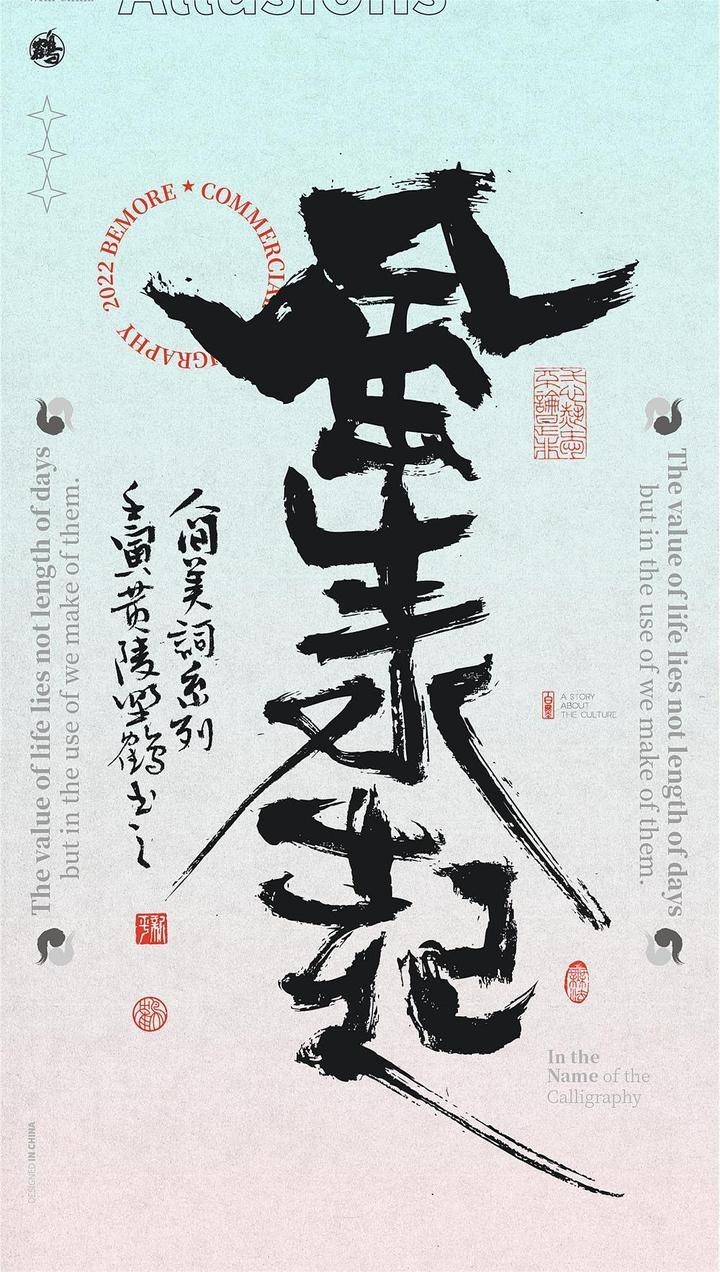 Allusions
鶴
2022 BEMORE ★ COMMERCIAL
GRAPHY
風生水起
人间美詞系列
壬寅黄陵野鶴书之
The value of life lies not length of days
but in the use of we make of them.
The value of life lies not length of days
but in the use of we make of them.
A STORY
ABOUT
THE CULTURE
In the
Name of the
Calligraphy
DESIGNED IN CHINA